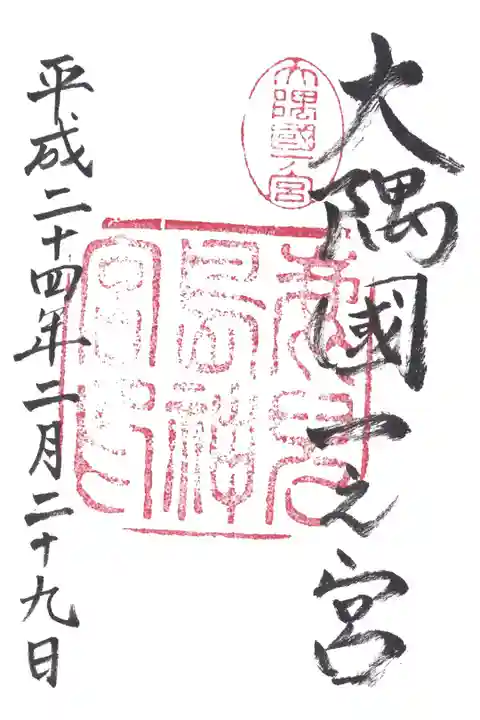 大隅國一之宮
大隅國一宮
鹿児
島神
宮印
平成二十四年二月二十九日